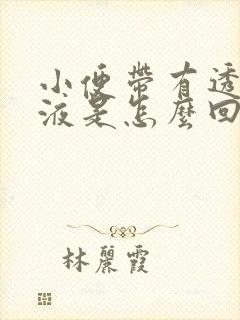 小便帶有透
液是怎麼回
林麗霞